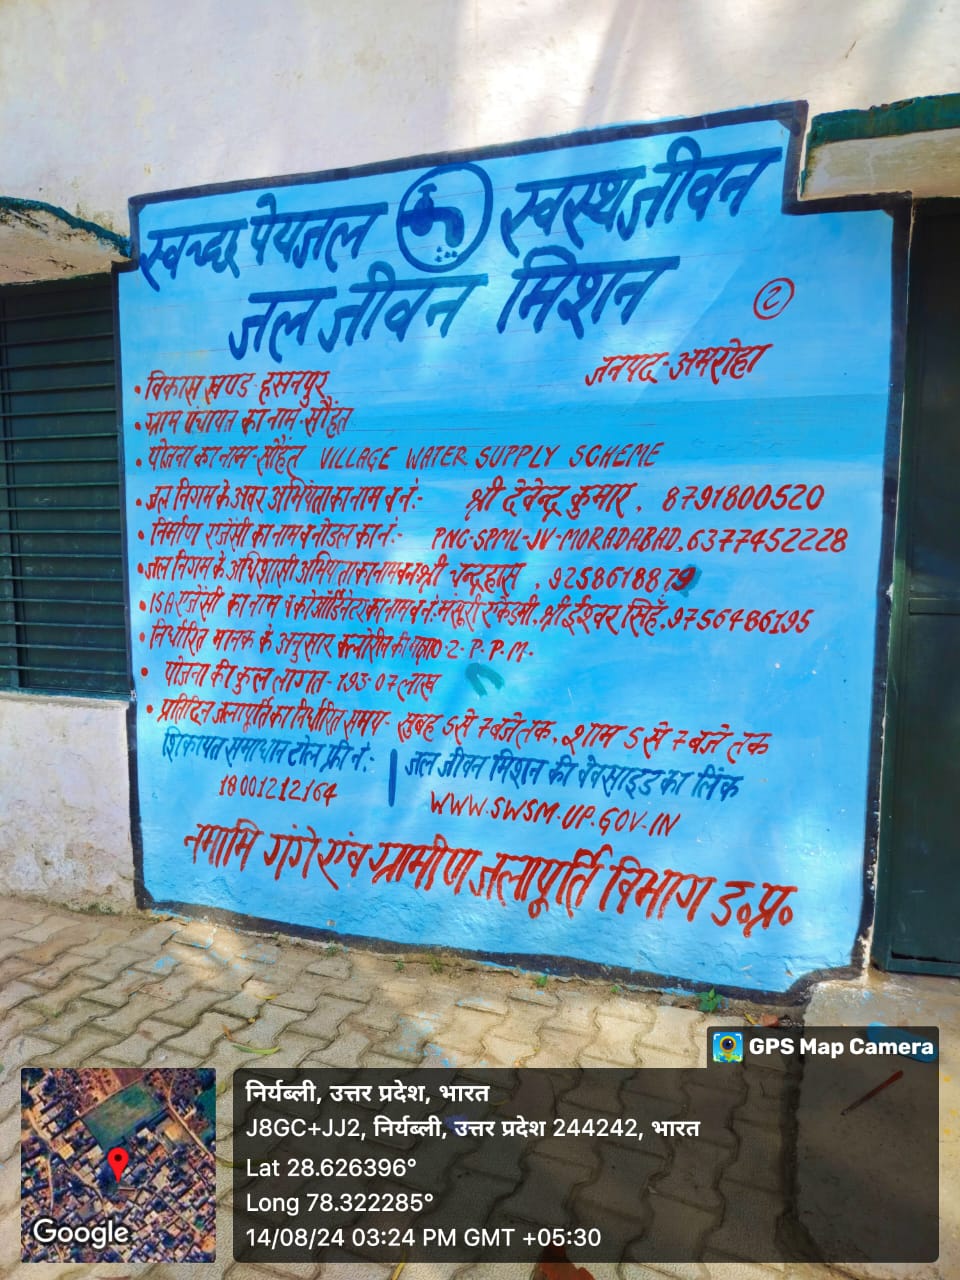 स्वच्छ पेयजल स्वस्थ जीवन
जल जीवन मिशन
2
जनपद-अमरोहा
• विकास खण्ड- हसनपुर
• ग्राम पंचायत का नाम- सौहत
• योजना का नाम-सौहत VILLAGE WATER SUPPLY SCHEME
• जल निगम के अवर अभियंता का नाम व नं:- श्री देवेन्द्र कुमार, 8791800520
• निर्माण एजेंसी का नाम व नोडल का नं:- PNC-SPML-JV-MORADABAD, 6377452228
• जल निगम के अधिशासी अभियंता का नाम व नं: श्री चन्द्रहास, 9258618879
• ISA एजेंसी का नाम व कोऑर्डिनेटर का नाम व नं: मंसूरी एकेडमी, श्री ईश्वर सिंह, 9756486195
• निर्धारित मानक के अनुसार क्लोरीन की मात्रा 0-2-P.P.M.
• योजना की कुल लागत- 193-07 लाख
• प्रतिदिन जलापूर्ति का निर्धारित समय- सुबह 5 से 7 बजे तक, शाम 5 से 7 बजे तक
शिकायत समाधान टोल फ्री नं:- | जल जीवन मिशन की वेवसाइड का लिंक
18001212164 WWW.SWSM-UP.GOV-IN
नमामि गंगे एंव ग्रामीण जलापूर्ति विभाग उ॰प्र॰
GPS Map Camera
निर्यब्ली, उत्तर प्रदेश, भारत
J8GC+JJ2, निर्यब्ली, उत्तर प्रदेश 244242, भारत
Lat 28.626396°
Long 78.322285°
14/08/24 03:24 PM GMT +05:30
Google